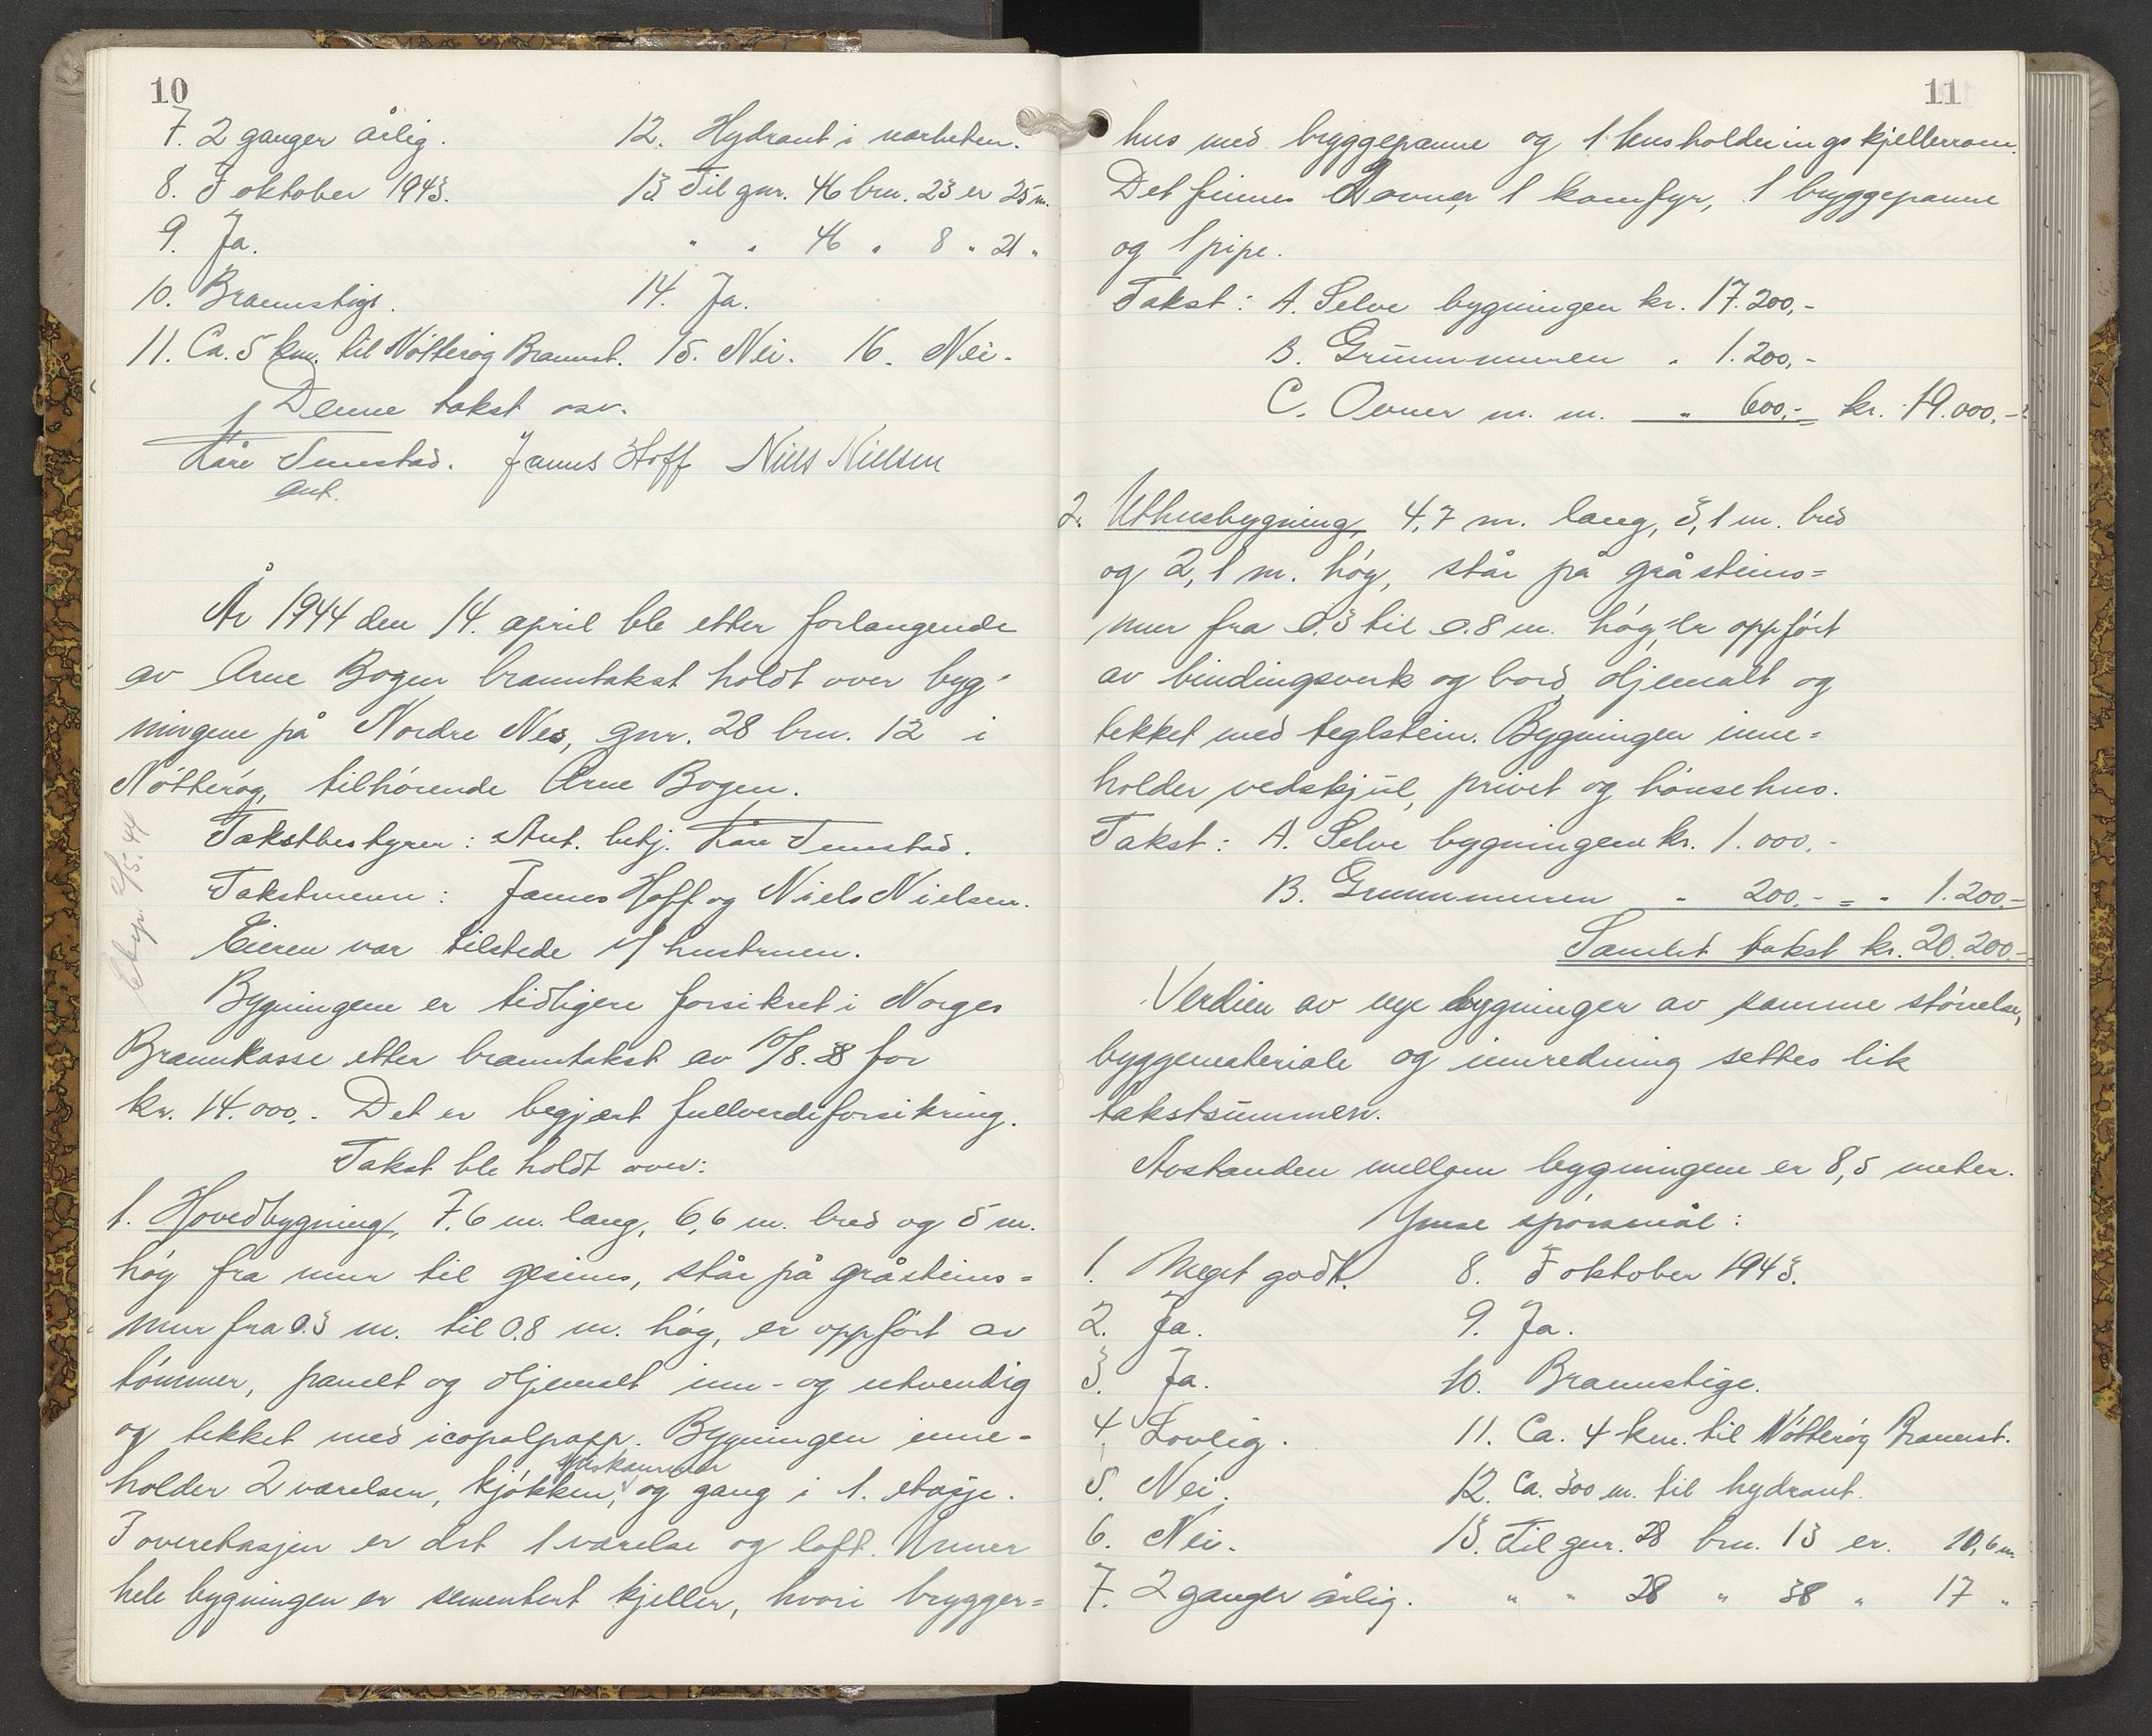 10
7. 2 ganger årlig. 12. Hydrant i nærheten.
8. I oktober 1943. 13. Til gnr. 46 brn. 23 er 25 m.
9. Ja. " " 46 " 8 " 21 "
10. Brannstige. 14. Ja.
11. Ca. 5 km. til Nøtterøy Brannst. 15. Nei. 16. Nei.
Denne takst osv.
Kåre Temstad. James Hoff Niels Nielsen
ant.
År 1944 den 14. april ble etter forlangende
av Arne Bogen branntakst holdt over byg-
ningene på Nordre Nes, gnr. 28 brn. 12 i
Nøtterøy, tilhørende Arne Bogen.
Takstbestyrer: Ant. betj. Kåre Temstad.
Takstmenn: James Hoff og Niels Nielsen.
Eieren var tilstede v/ hustruen.
Bygningene er tidligere forsikret i Norges
Brannkasse etter branntakst av 10/8. 38 for
kr. 14.000,- Det er begjært fullverdiforsikring.
Takst ble holdt over:
1. Hovedbygning, 7,6 m. lang, 6,6 m. bred og 5 m.
høy fra mur til gesims, står på gråsteins=
mur fra 0.3 m. til 0.8 m. høy, er oppført av
tømmer, panelt og oljemalt inn- og utvendig
og tekket med icopalpapp. Bygningen inne-
holder 2 værelser, kjøkken, spiskammer og gang i 1. etasje.
I overetasjen er det 1 værelse og loft. Unner
hele bygningen er sementert kjeller, hvori brygger=
Ekspr. 2/5. 44
11
hus med bryggepanne og 1 husholdningskjellerrom.
Det finnes 2 ovner, 1 komfyr, 1 bryggepanne
og 1 pipe.
Takst: A. Selve bygningen kr. 17.200,-
B. Grunnmuren " 1.200,-
C. Ovner m. m. " 600,- = kr. 19.000,-
2. Uthusbygning, 4,7 m. lang, 3,1 m. bred
og 2,1 m. høy, står på gråsteins=
mur fra 0.3 til 0.8 m. høy, er oppført
av bindingsverk og bord, oljemalt og
tekket med teglstein. Bygningen inne=
holder vedskjul, privet og hønsehus.
Takst: A. Selve bygningen kr. 1.000,-
B. Grunnmuren " 200.- = " 1.200.-
Samlet takst kr. 20.200.-
Verdien av nye bygninger av samme størrelse,
byggemateriale og innredning settes lik
takstsummen.
Avstanden mellom bygningene er 8,5 meter.
Ymse spørsmål:
1. Meget godt. 8. I oktober 1943.
2. Ja. 9. Ja.
3. Ja. 10. Brannstige.
4. Lovlig. 11. Ca. 4 km. til Nøtterøy Brannst.
5. Nei. 12. Ca. 300 m. til hydrant.
6. Nei. 13. Til gnr. 28 brn. 13 er. 10,6 m.
7. 2 ganger årlig. " " 28 " 38 " 17 "